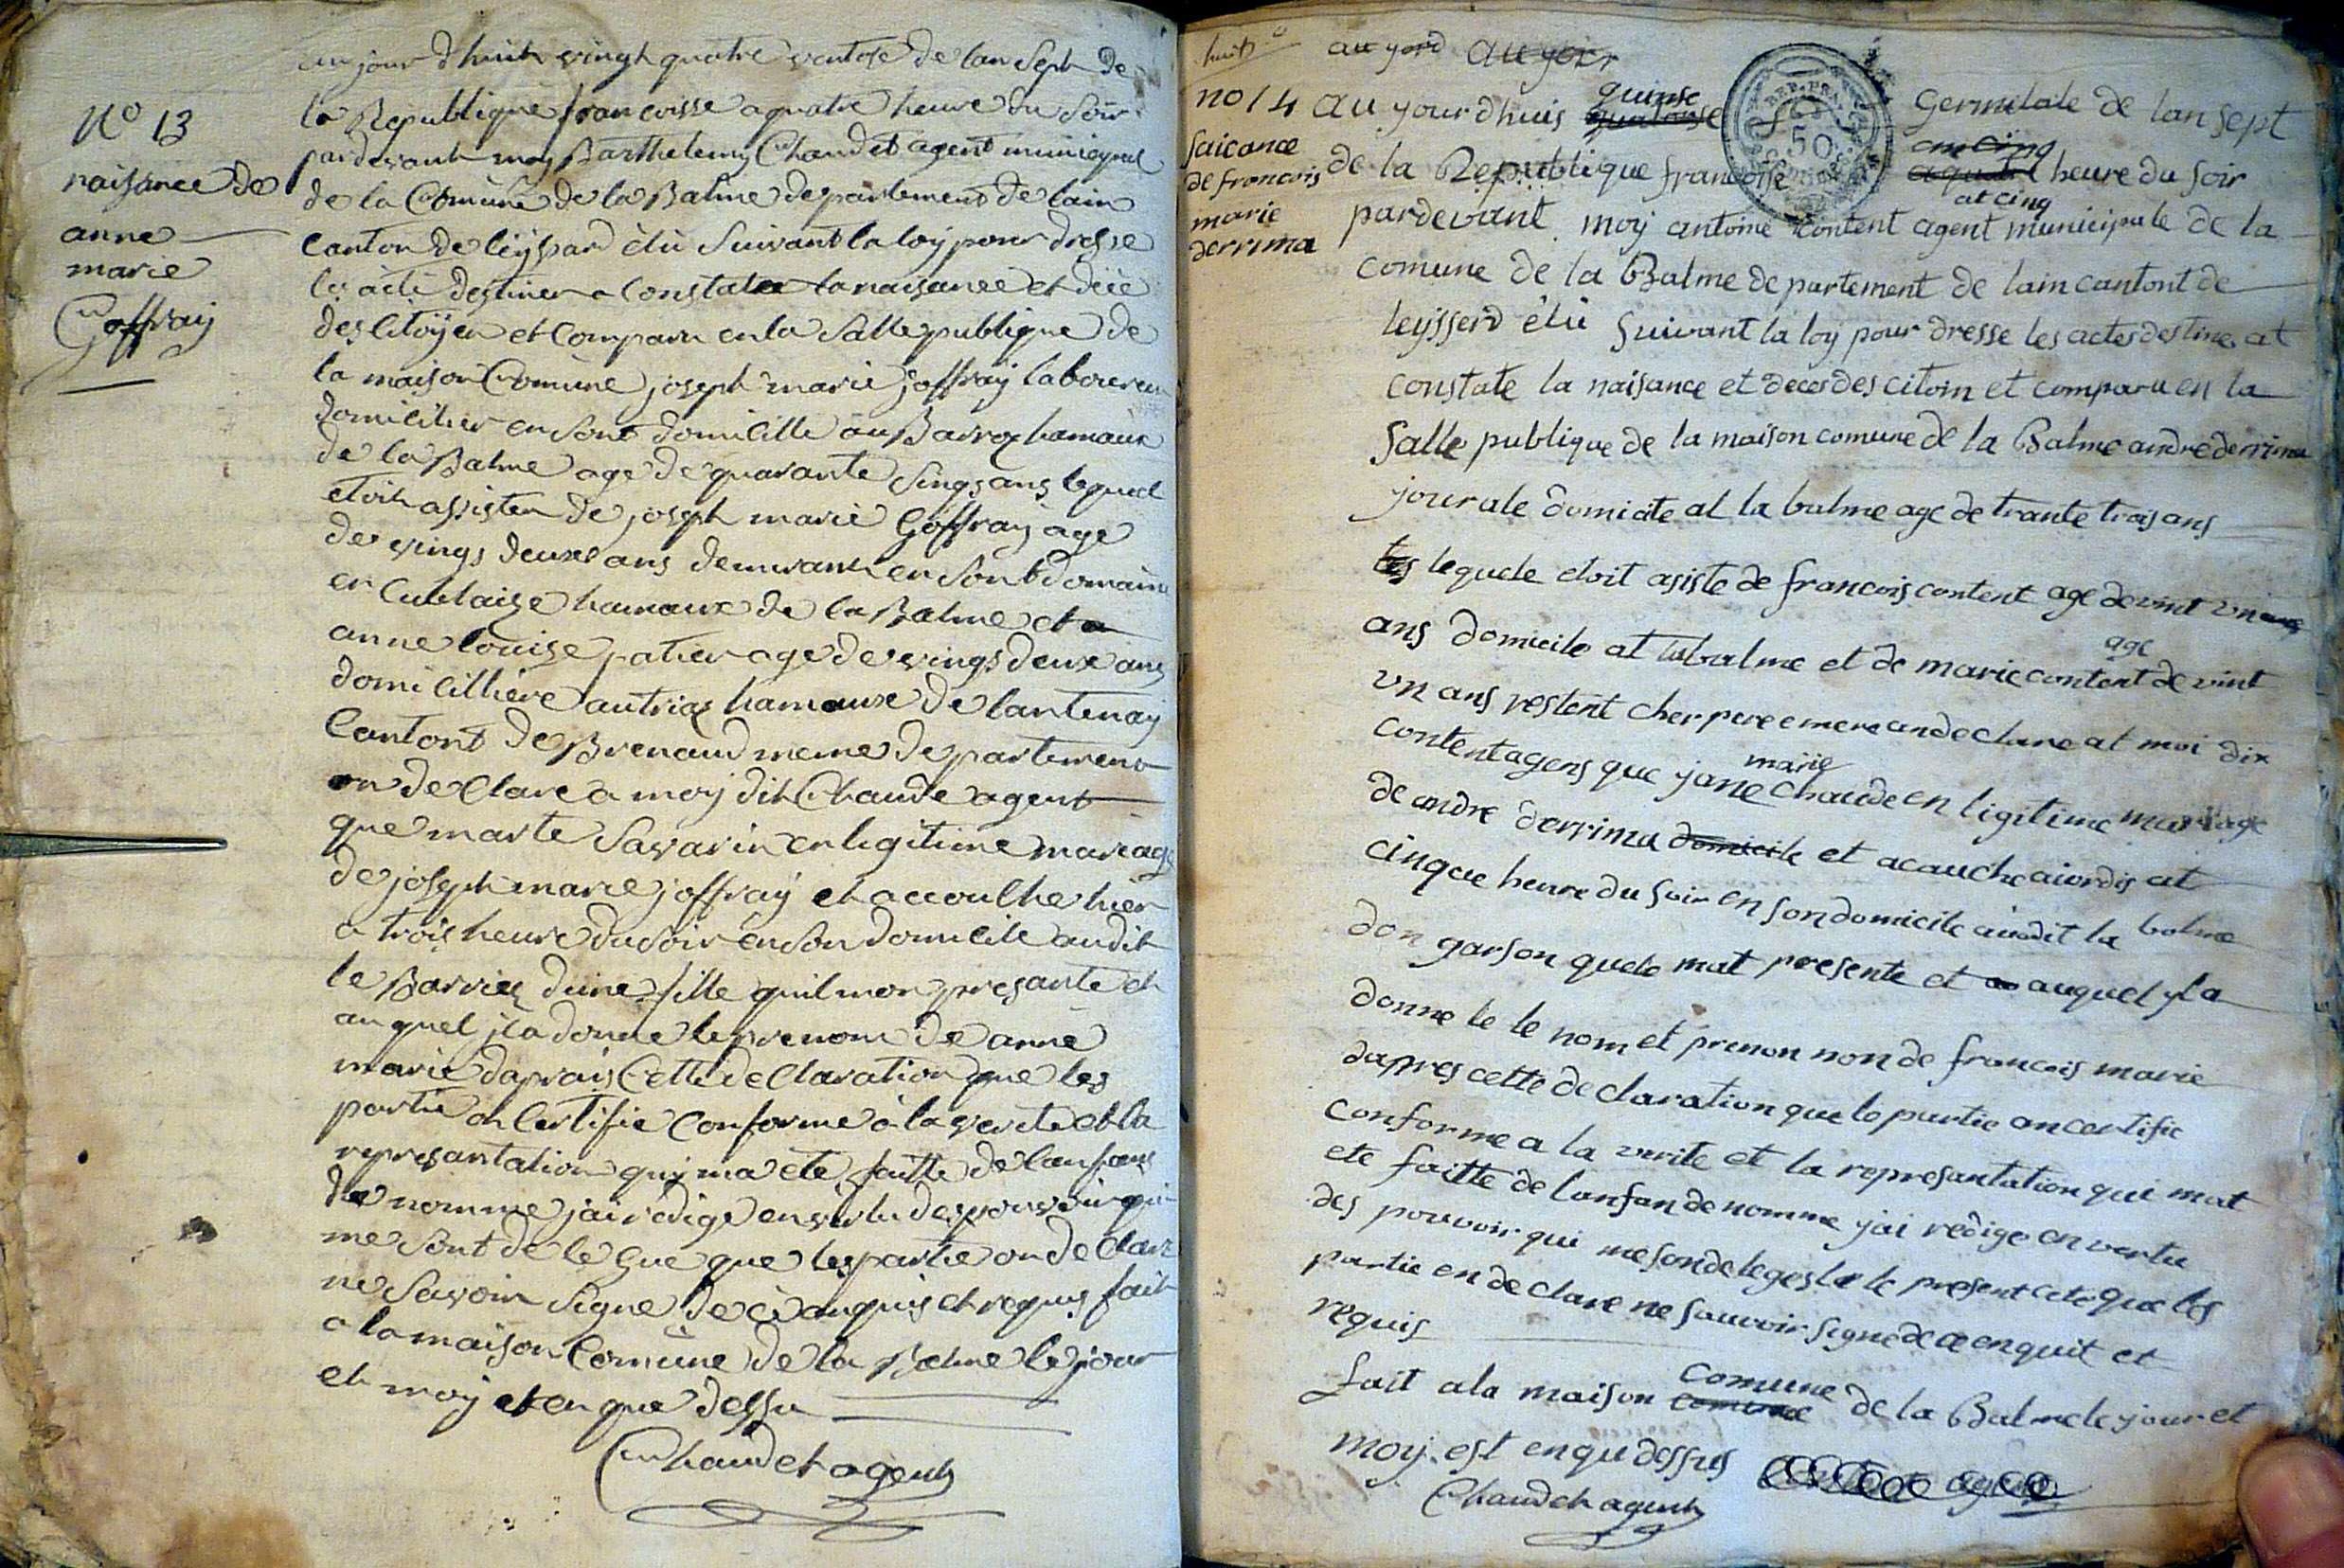 N° 13
naisance de
anne
marie
Goffray
au jour dhuit vingt quatre ventose de lan Sept de
la Republique francoisse a quatre heure du Soir
pardevant moy Barthelemy Chaudet agent municipal
de la Comune de la Balme departement de lain
Canton de leyssard élu Suivant la loy pour dresse
les acte destiner a Constater la naisance et décé
des Citoyen et Comparu en la Salle publique de
la maison Comune joseph marie joffray laboureur
domicilier en Sont domicille au Barrox hamaux
de la Balme age de quarante Sinqs ans lequel
etoit assister de joseph marie Goffray age
de vings deuxe ans demurant en Sont domaine
en Cublaize hamaux de la Balme et a
anne louise patier age de vings deux ans
domicilliere autriax hamaux de lantenay
Cantont de Brenaud meme departement
on declare a moy dit Chaude agent
que marte Savarin en legitime mariage
de joseph marie joffray et accoulhe hier
a trois heure du Soir en Son domicile audit
le Barries dune fille quil mon presante et
au quel jl a donne le prenom de anne
marie daprais Cette declaration que les
partie on Certifie Conforme à la verite et la
represantation quy ma ete faitte de lanfans
de nomme jai redige en virtu des pouvoir qui
me Sont delegue que les partie on declare
ne Savoir Signe de ce anquis et requis fait
a la maison Comune de la Balme le jour
et moy et en que dessu
Chaudet agent
huits
au yord au your
no 14
saicance
de francois
marie
derrima
quinse
au yourdhuis quatorse germilale de lan sept
REP. FRA.
50
an cinq
de la Republique francoise a quatre heure du soir
at cinq
pardevant moy antoine content agent municipale de la
comune de la Balme departement de lain cantont de
leysserd élu suivant la loy pour dresse les actes destine at
constate la naisance et deces des citoin et comparu en la
salle publique de la maison comune de la Balme andre derrima
jourale domicile at la balme age de trante trois ans
les lequele etoit asiste de francois content age de vint un ans
age
ans domicile at la balme et de marie content de vint
un ans restent cher pere e mere an declare at moi dix
marie
content agens que jane chaude en ligitime mariage
de andre derrima domicile et acauche aiordis at
cinque heure du soir en son domicile audit la balme
don garson quele mat presente et a auquel yl a
donne le le nom et prenon non de francois marie
dapres cette declaration que le partie an certifie
conforme a la verite et la represantation qui mat
ete faitte de lanfan de nomme jai redige en vertu
des pouvoir qui me son deleges le le present acte que les
partie en declare ne sauvoir signe de ce enquit et
requis
comune
fait a la maison comune de la Balme le jour et
moy. est en qu dessus
Chaudet agent